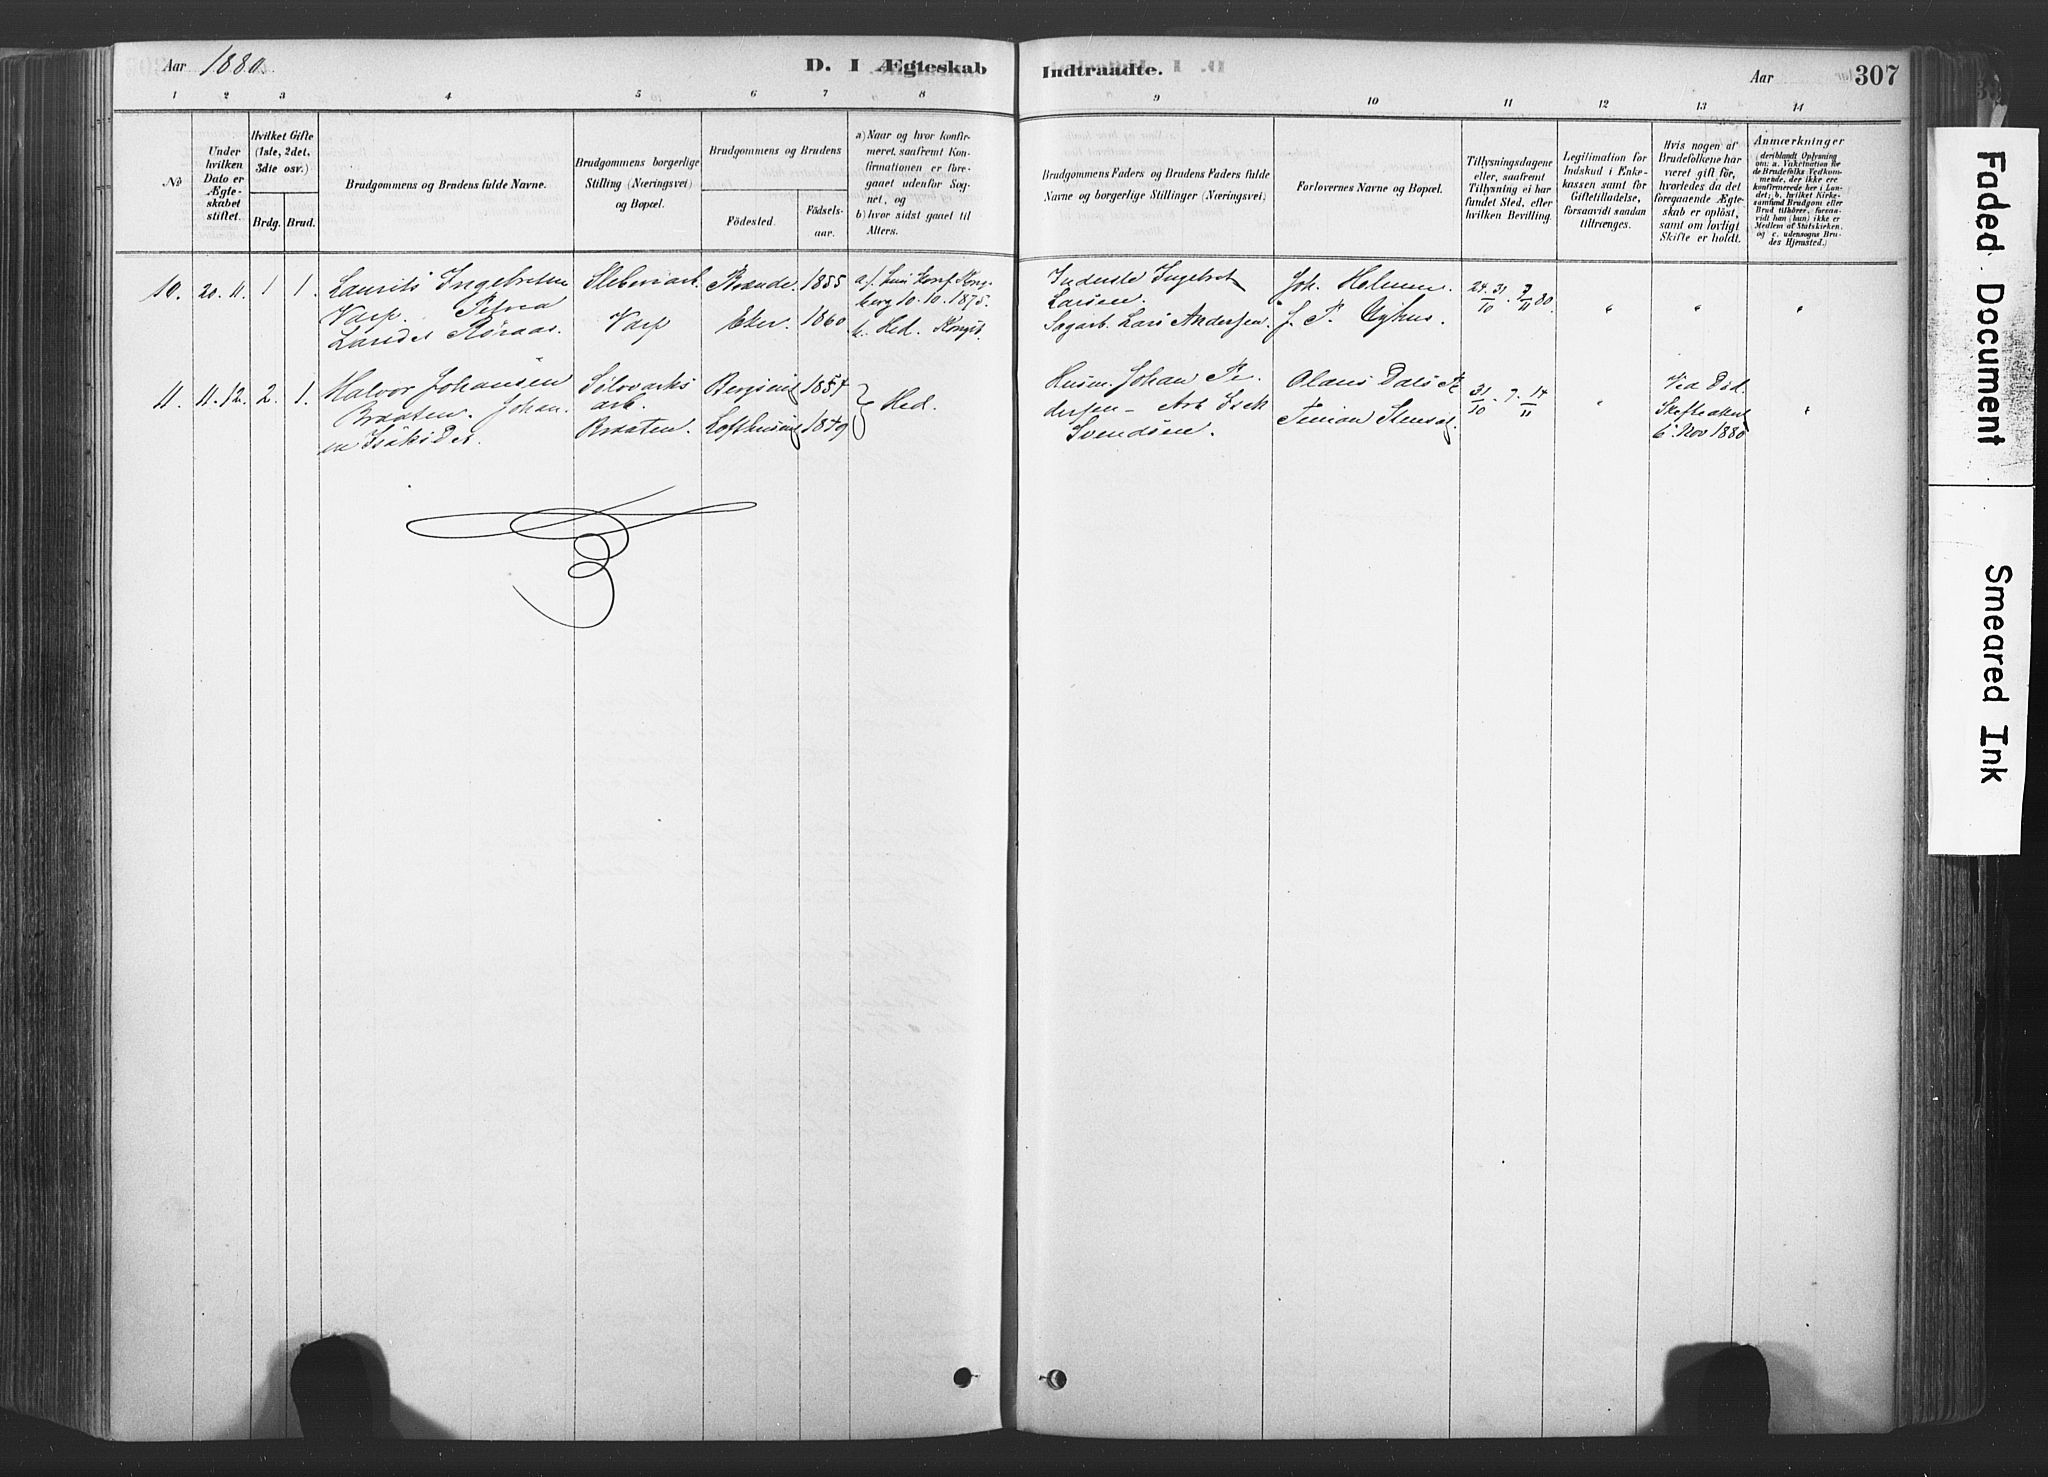 Aar 1880.
D. I Ægteskab
Indtraadte.
Aar
307
1 2 3 4 5 6 7 8
9 10 11 12 13 14
No
Under hvilken Dato er Ægteskabet stiftet.
Hvilket Gifte (1ste, 2det, 3die osv.)
Brdg. Brud.
Brudgommens og Brudens fulde Navne.
Brudgommens borgerlige Stilling (Næringsvei) og Bopæl.
Brudgommens og Brudens
Födested.
Födselsaar.
a) Naar og hvor konfirmeret, saafremt Konfirmationen er foregaaet udenfor Sognet, og
b) hvor sidst gaaet til Alters.
Brudgommens Faders og Brudens Faders fulde Navne og borgerlige Stillinger (Næringsvei)
Forlovernes Navne og Bopæl.
Tillysningsdagene eller, saafremt Tillysning ei har fundet Sted, efter hvilken Bevilling.
Legitimation for Indskud i Enkekassen samt for Giftetilladelse, forsaavidt saadan tiltrænges.
Hvis nogen af Brudefolkene har været gift för, hvorledes da det foregaaende Ægteskab er oplöst, samt om lovligt Skifte er holdt.
Anmærkninger
(deriblandt Oplysning om: a. Vakcination for de Brudefolks Vedkommende, der ikke ere konfirmerede her i Landet; b. hvilket Kirkesamfund Brudgom eller Brud tilhörer, forsaavidt han (hun) ikke er Medlem af Statskirken, og c. udensogns Brudes Hjemsted.)
10. 20.11. 1 1. Laurits Ingebretsen Sliberiarb. 1855
Varp. Petrea Varp Eker. 1860
Larsdr Röraas. b. Hed. Kongsb.
berg 10.10.1875.
Inderste Ingebret
Larsen.
Sagarb. Lars Andersen.
Joh. Helmen.
J. P. Nyhus.
24. 31/10. 7/11 80.
" " "
11. 11.12. 2. 1. Halvor Johansen Sölvverks 1854
Braaten. Johan- arb. 1849
na Isaksdr. Braaten. Hed.
Husm. Johan Pe-
dersen – Arb Isak
Svendsen.
Olaus
Simon
31/10. 7. 14/11
"
Ved Död.
Skifteattest
6 Nov 1880
"
Faded Document
Smeared Ink